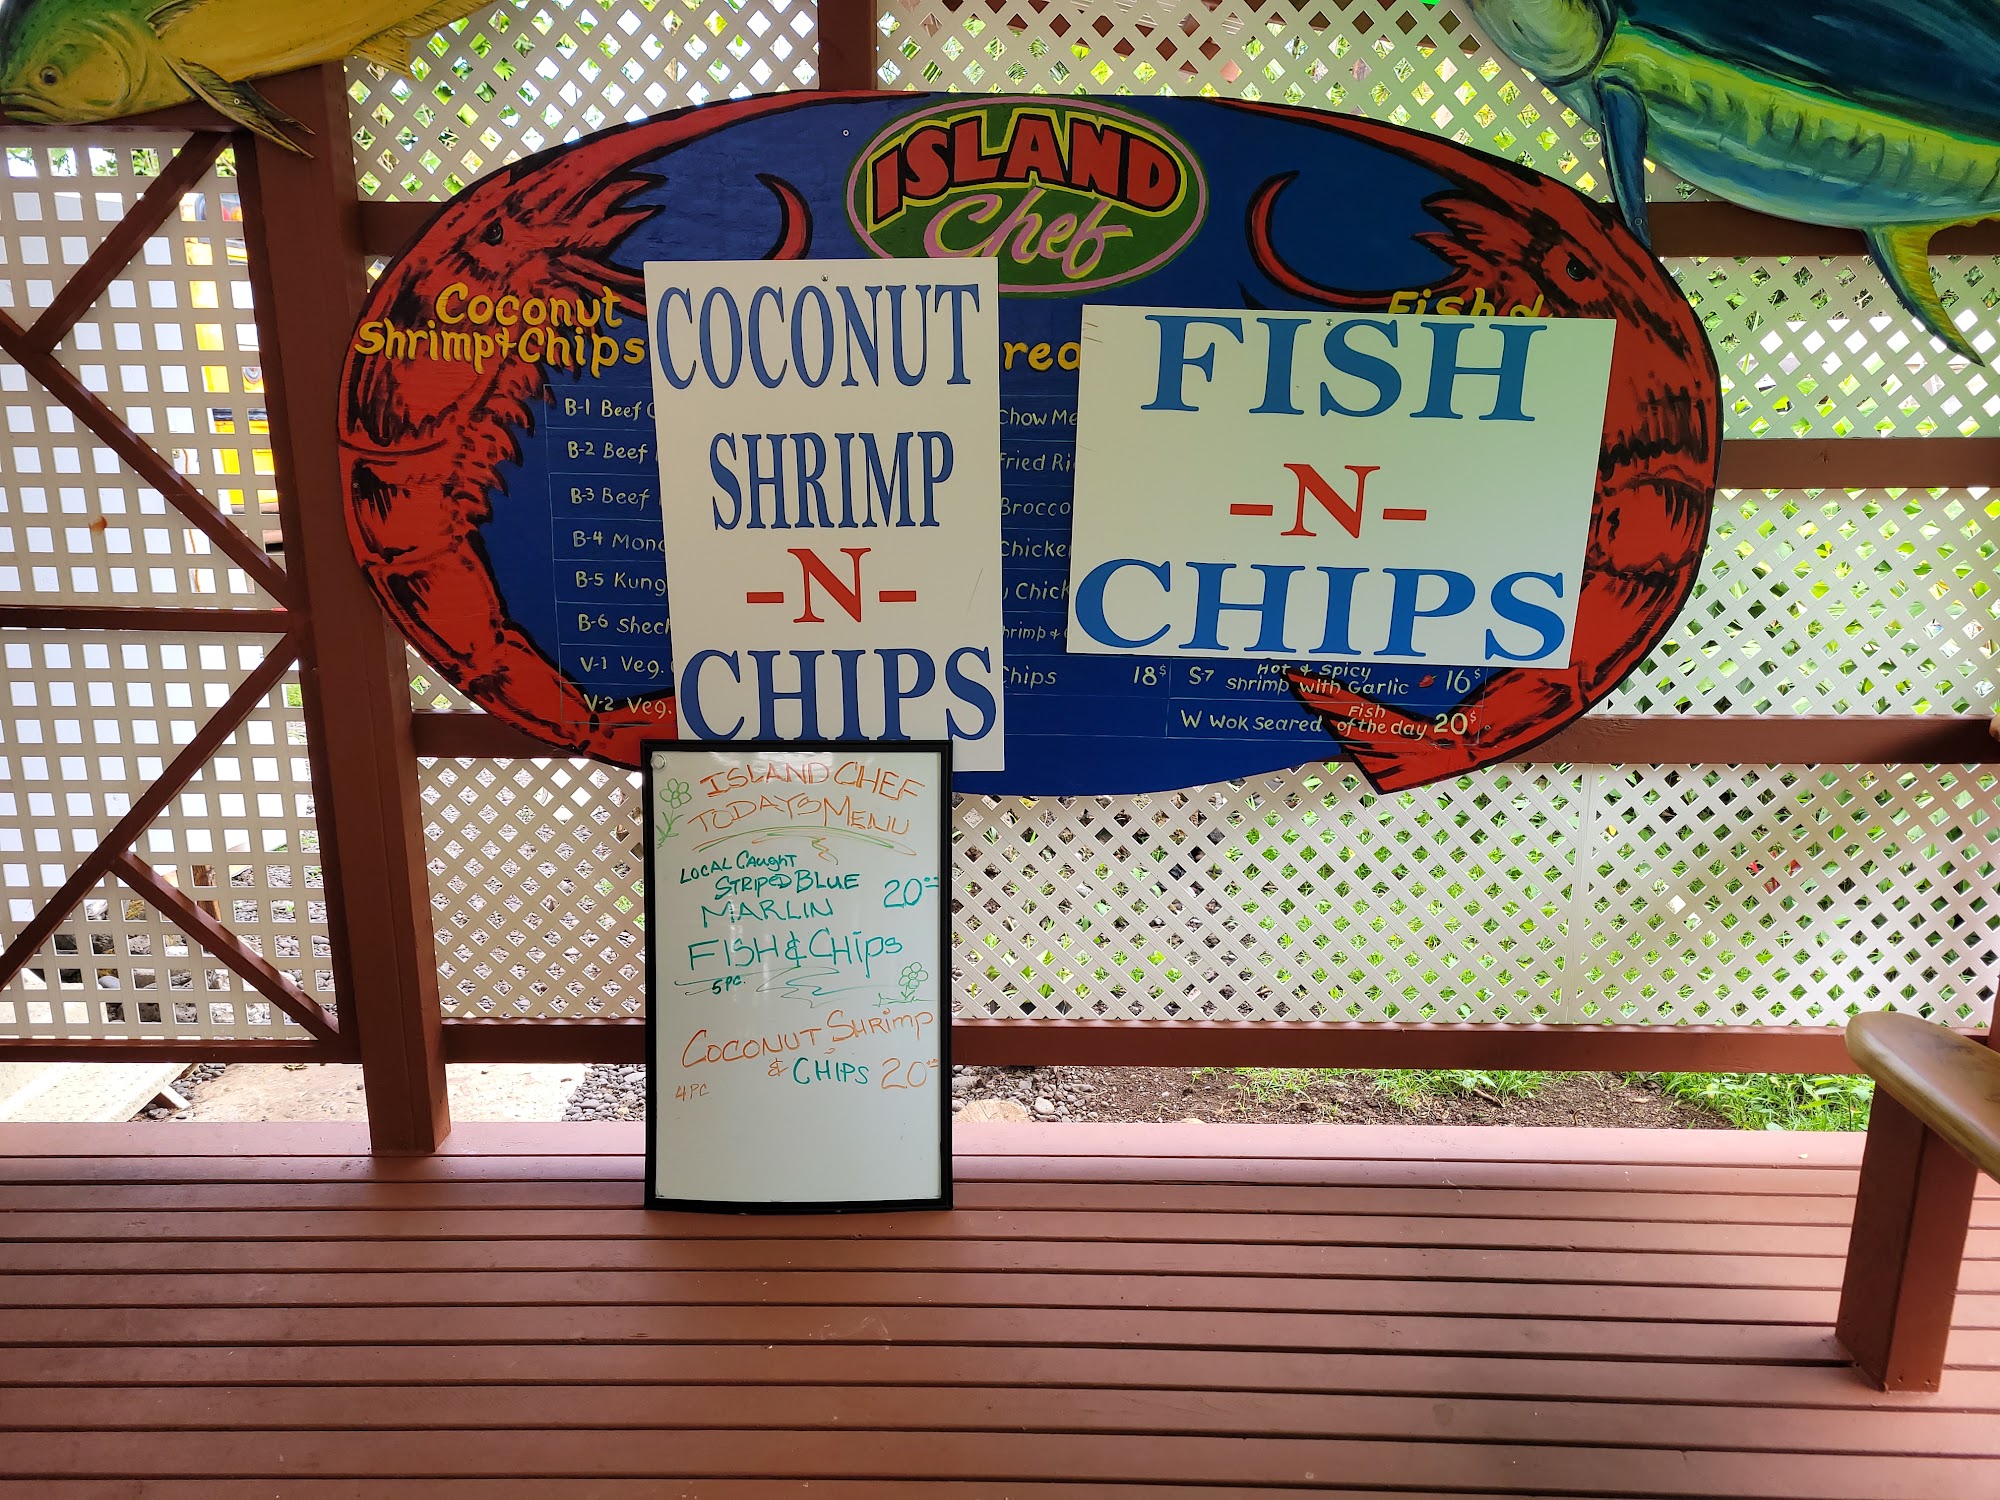 ISLAND
Chef
Coconut
Shrimp & Chips
Fish &
COCONUT
SHRIMP
-N-
CHIPS
FISH
-N-
CHIPS
B-1 Beef
B-2 Beef
B-3 Beef
B-4
B-5 Kung
B-6
V-1 Veg.
V-2 Veg.
Chow
Fried
18$
S-7 Hot & Spicy
Shrimp with Garlic 16$
W Wok Seared Fish
of the day 20$
ISLAND CHEF
TODAYS MENU
LOCAL CAUGHT
STRIPED BLUE 20.00
MARLIN
FISH & CHIPS
5 PC.
COCONUT SHRIMP
& CHIPS 20.00
4 PC